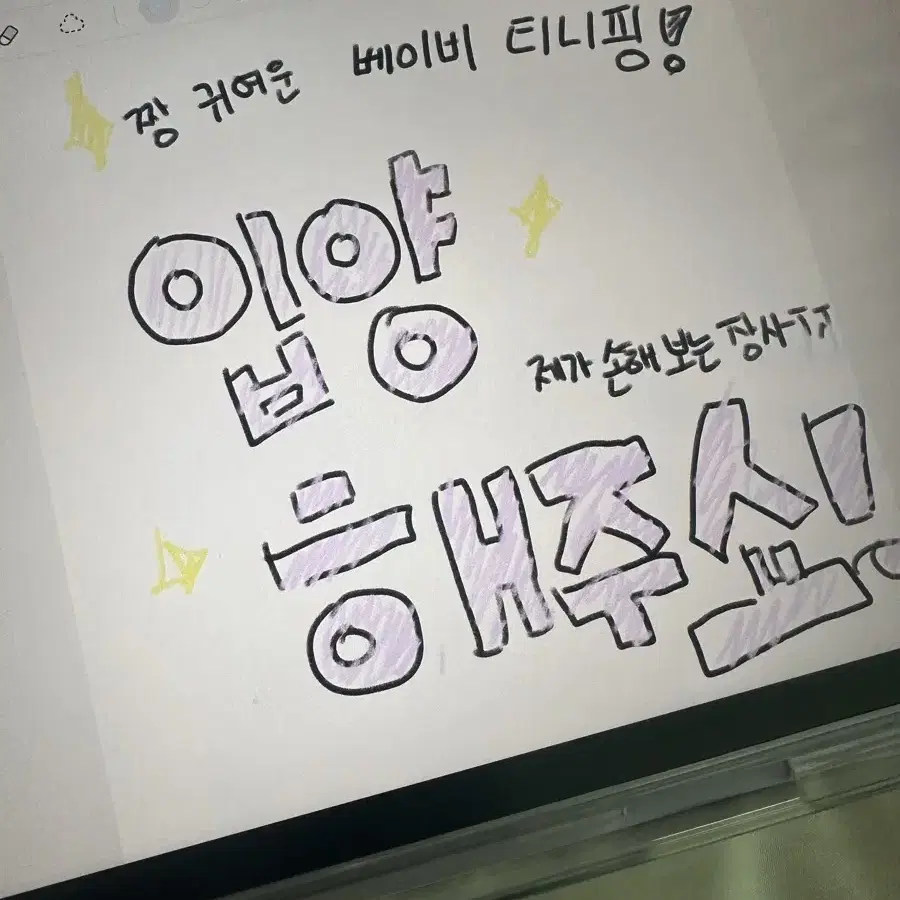 짱 귀여운 베이비 티니핑!
입양
제가 손해 보는 장사ㅠㅠ
해주쇼